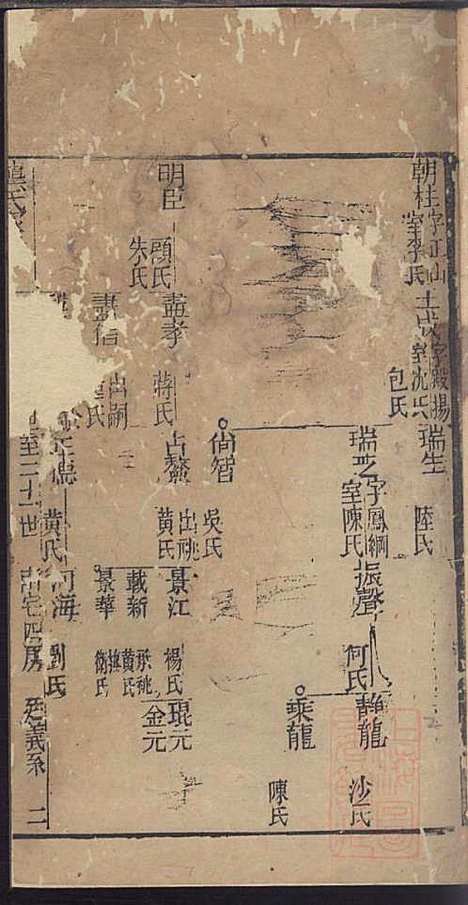 朝柱字江山
室李氏
士成字殿揚
室沈氏
包氏
瑞生
陸氏
瑞芝字鳳綱
室陳氏
振聲
何氏
靜龍
沙氏
乘龍
陳氏
尚智
吳氏
明臣
顧氏
朱氏
盡孝
蔣氏
占鰲
出祧
黃氏
景江
楊氏
琨元
金元
載新
承祧
黃氏
景華
衡氏
盡信
出嗣
氏
正德
黃氏
河海
劉氏
龔氏
至二十一世
四房
廷義系
二